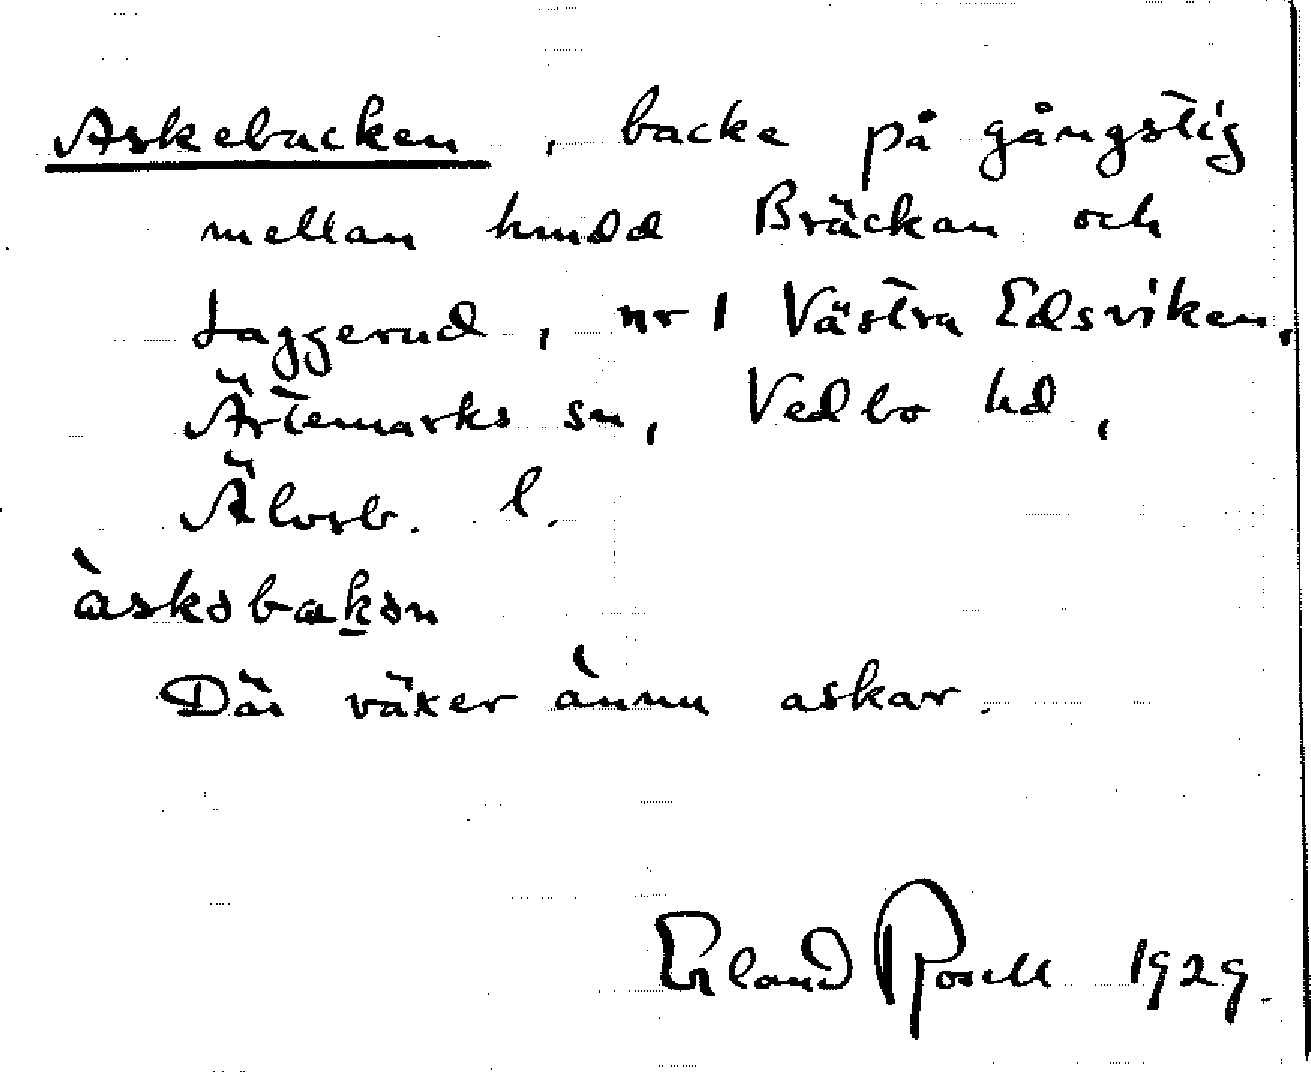 Askebacken, backe på gångstig
mellan hmdd Bräckan och
Laggerud, nr 1 Västra Edsviken,
Ärtemarks sn, Vedbo hd,
Älvsb. l.
àskəbakən
Där växer ännu askar.
Erland Rosell 1929.